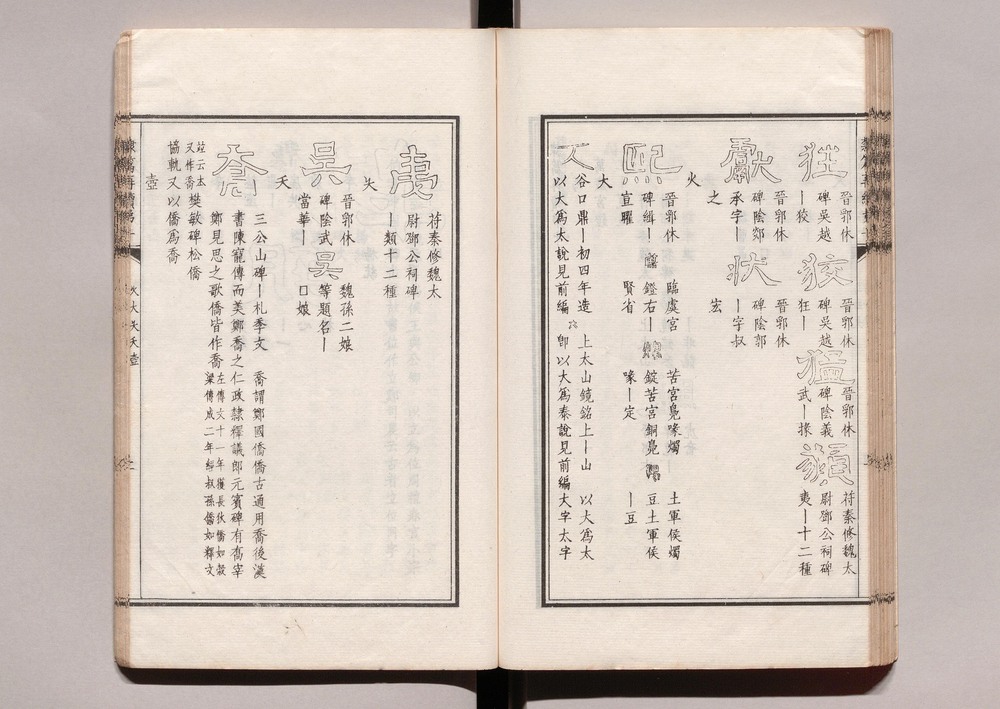 狂
晉郭休
碑吳越
丨狡
狡
晉郭休
碑吳越
狂丨
猛
晉郭休
碑陰義
武丨掾
類
苻秦修魏太
尉鄧公祠碑
夷丨十二種
獻
晉郭休
碑陰郯
承字丨
之
狀
晉郭休
碑陰郭
丨字叔
宏
火
熙
晉郭休
碑緝丨
宣曜
臨虞宮
鐙右丨
賢省
苦宮鳧喙燭丨
錠苦宮銅鳧
喙丨定
土軍侯燭
豆土軍侯
丨豆
大
谷口鼎丨初四年造
以大爲太說見前編
上太山鏡銘上丨山 以大爲太
卽以大爲泰說見前編大字太字
夷
苻秦修魏太
尉鄧公祠碑
丨類十二種
夨
吳
晉郭休
碑陰武
當華丨
吳
魏孫二娘
等題名丨
口娘
夭
喬
三公山碑丨札季文 喬謂鄭國僑僑古通用喬後漢
書陳寵傳而美鄭喬之仁政隸釋議郎元賓碑有喬宰
鄭見思之歌僑皆作喬
左傳文十一年獲長狄僑如榖
梁傳成二年經叔孫僑如釋文
竝云本
又作喬
樊敏碑松僑
協軌又以僑爲喬
壺
火大夨夭壺